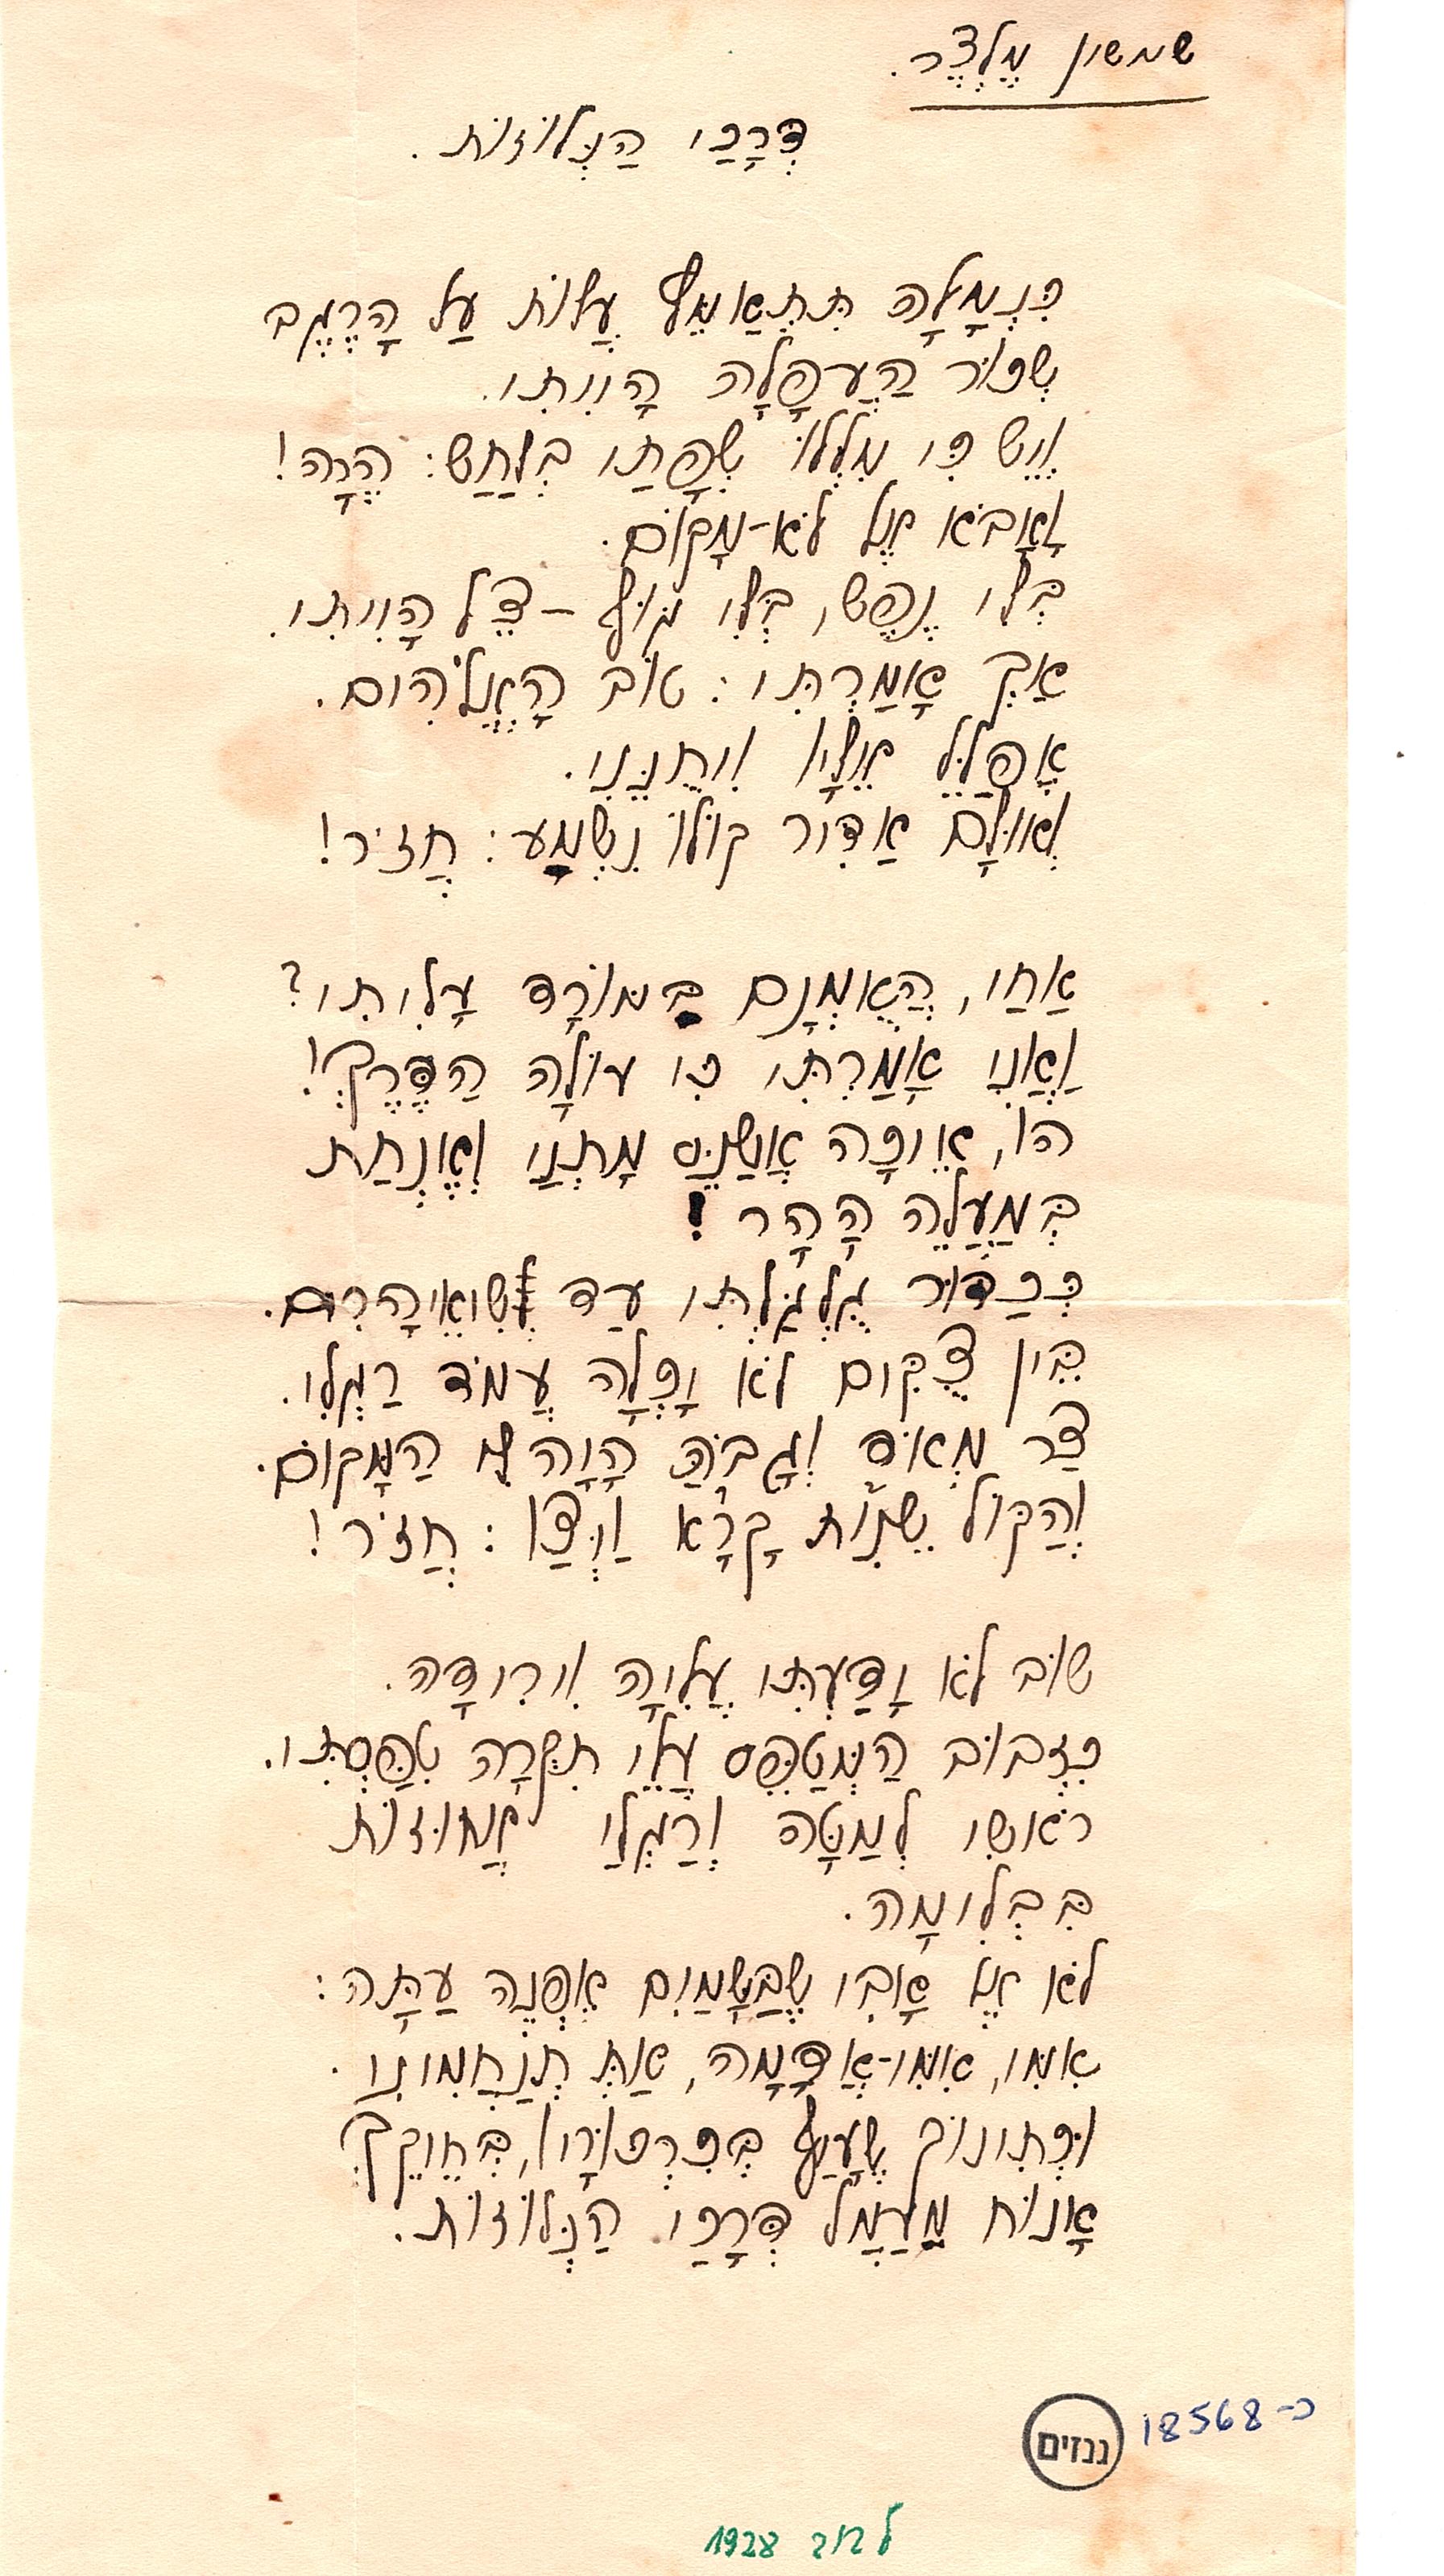 שמשון מֶלְצֶר.
דְּרָכַי הַנְּלוֹזוֹת.
כִּנְמָלָה תִּתְאַמֵּץ עֲלוֹת עַל הָרֶגֶב
שִׁכּוֹר הַעְפָּלָה הָיִיתִי.
וְיֵשׁ כִּי מִלְלוּ שְׂפָתַי בְּלַחַשׁ: הֶרָה!
וָאָבֹא אֶל לֹא-מָקוֹם.
בְּלִי נֶפֶשׁ, בְּלִי גוּף – צֵל הָיִיתִי.
אַךְ אָמַרְתִּי: טוֹב הָאֱלֹהִים.
אֲפַלֵּל אֵלָיו וִיחָנֵּנִי.
וְאוּלָם אַדִּיר קוֹלוֹ נִשְׁמַע: חֲזֹר!
אַחַי, הַאֻמְנָם בַּמּוֹרָד עָלִיתִי?
וַאֲנִי אָמַרְתִּי כִּי עוֹלָה הַדֶּרֶךְ!
הוֹ, אֵיכָה אֲשַׁנֵּס מָתְנַי וְאֶנְחַת
בְּמַעֲלֵה הָהָר!
כְּכַדּוּר גֻּלְגַּלְתִּי עַד שִׂיאֵי הָרִים.
בֵּין צֻקִים לֹא יָכְלָה עֲמֹד רַגְלִי.
צַר מְאֹד וְגָבֹהַּ הָיָה הַמָּקוֹם.
וְהַקּוֹל שֵׁנִית קָרָא וַיְצַו: חֲזֹר!
שׁוּב לֹא יָדַעְתִּי עֲלִיָּה וִירִידָה.
כִּזְבוּב הַמְטַפֵּס עֲלֵי תִקְרָה טִפַּסְתִּי.
רֹאשִׁי לְמַטָּה וְרַגְלַי אֲחוּזוֹת
בִּבְלִימָה.
לֹא אֶל אָבִי שֶׁבַּשָּׁמַיִם אֶפְנֶה עַתָּה:
אִמִּי, אִמִּי-אֲדָמָה, אַתְּ תְּנַחֲמִינִי.
וּכְתִינוֹק שֶׁעָיֵף בְּפִרְפּוּרָיו, בְּחֵיקֵךְ
אָנוּחַ מֵעֲמַל דְּרָכַי הַנְּלוֹזוֹת.
כ-18568
גנזים
לבוב 1928